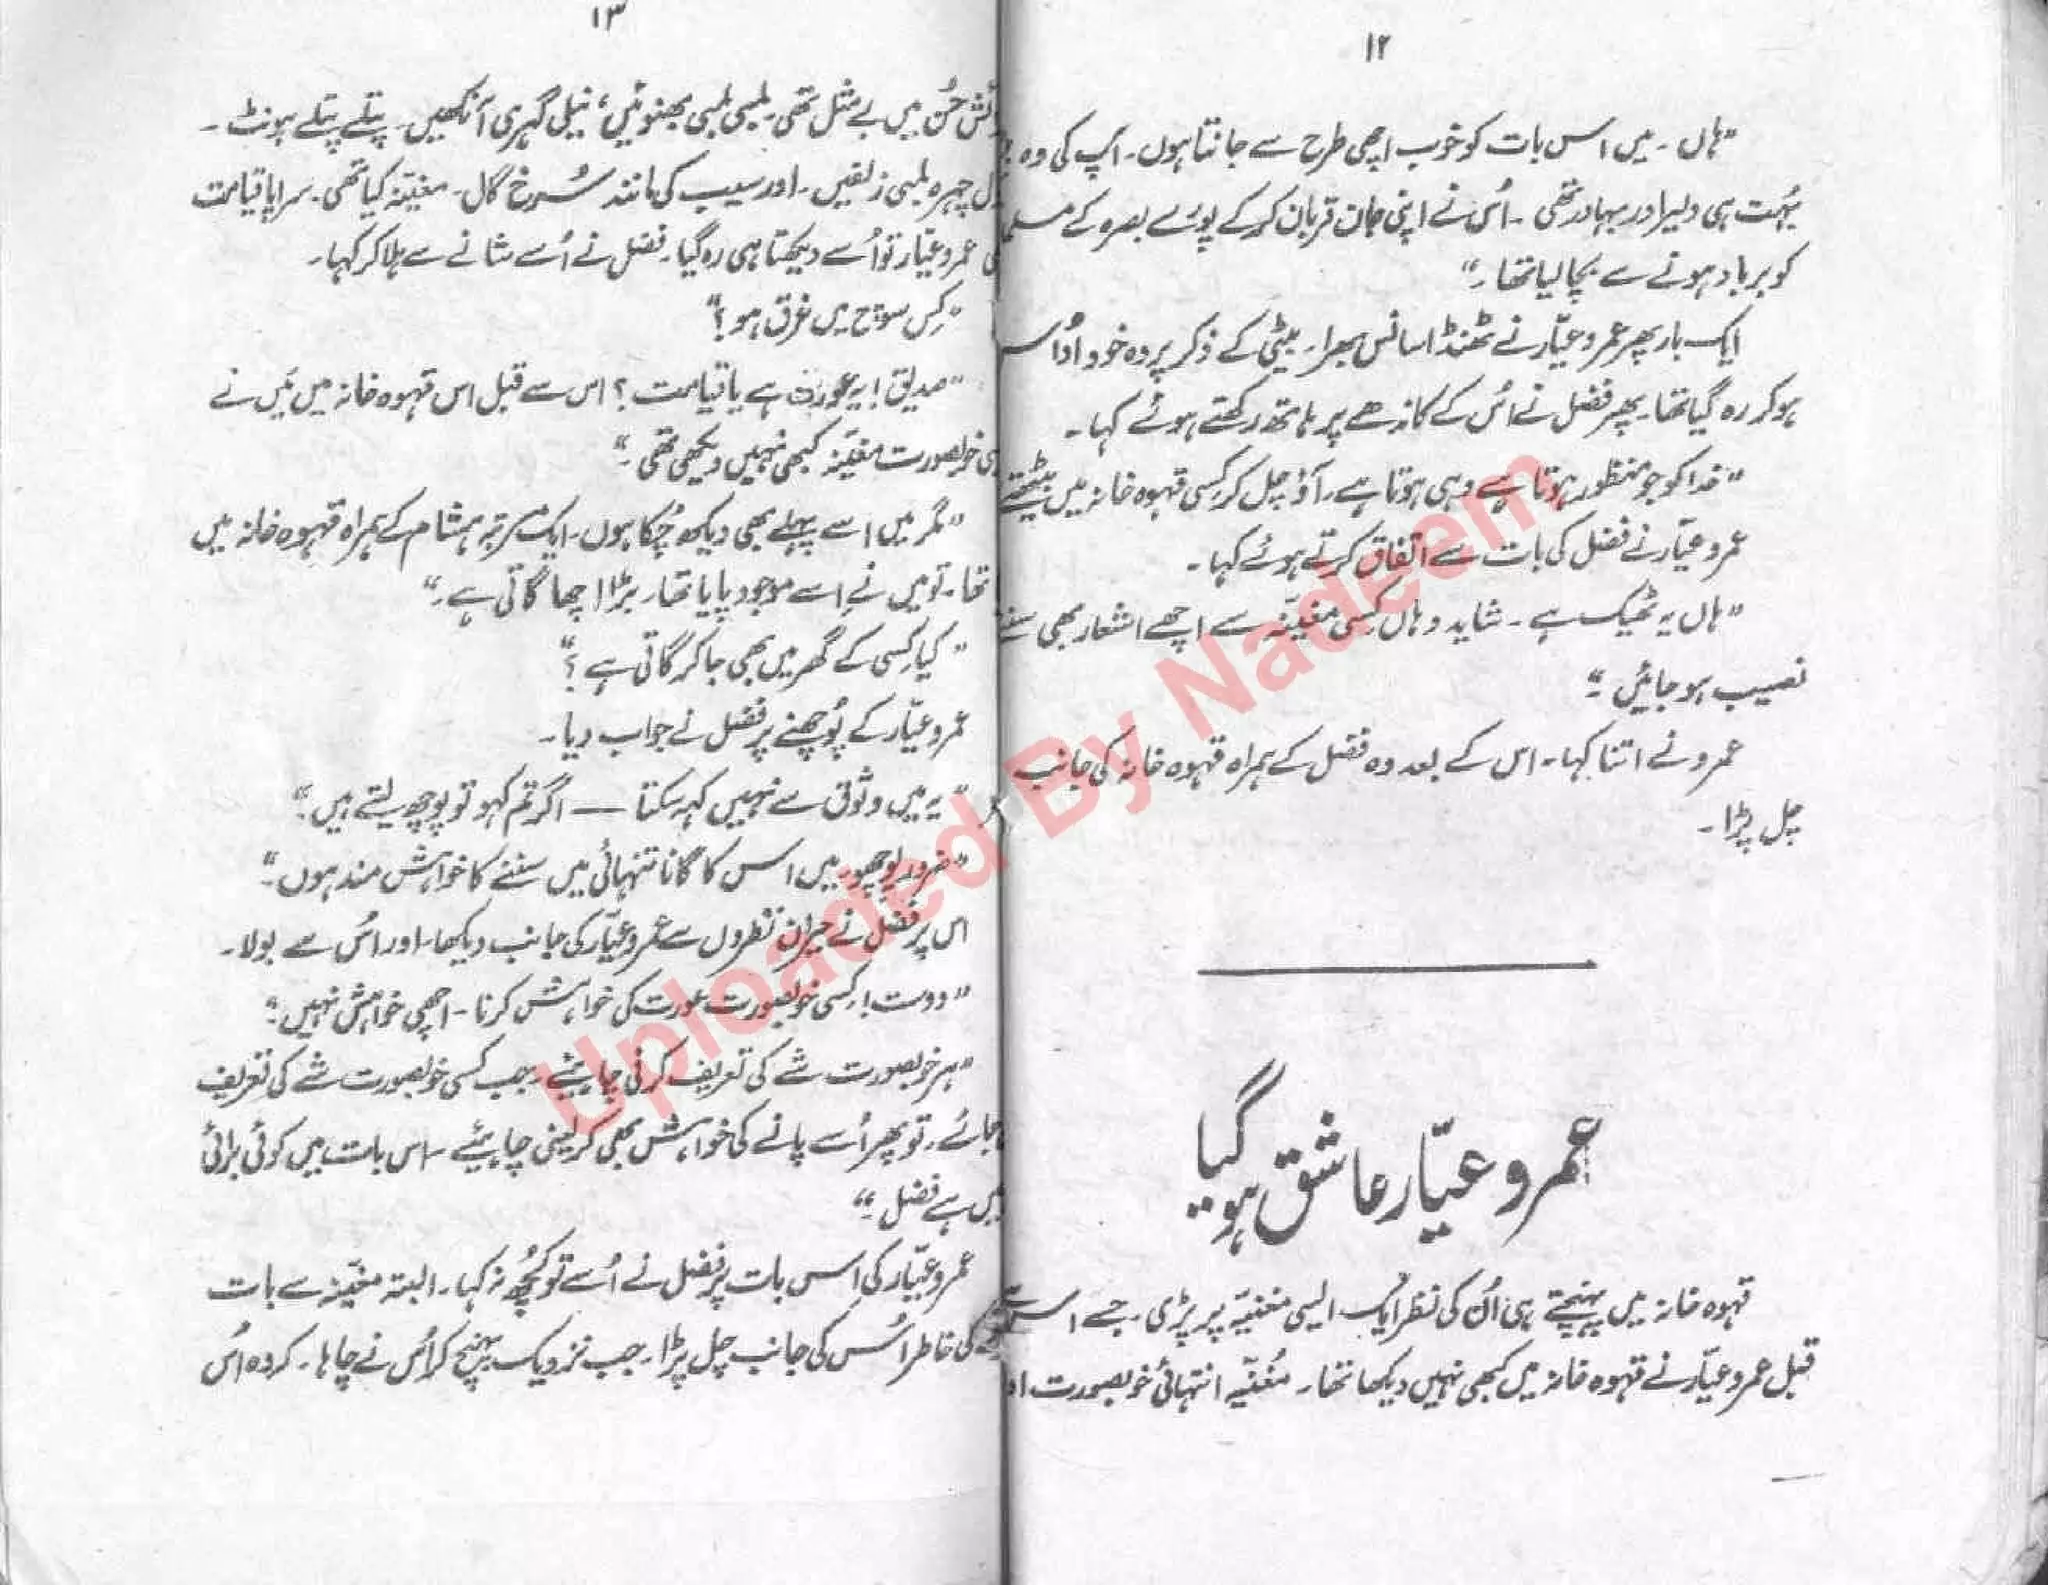 ۱۲
"ہاں۔ میں اس بات کو خوب اچھی طرح سے جانتا ہوں۔ آپ کی وہ
بہُت ہی دلیر اور بہادر تھی۔ اُس نے اپنی جان قربان کر کے پورے بصرہ کے
کو برباد ہونے سے بچا لیا تھا۔"
ایک بار پھر عمرو عیّار نے ٹھنڈا سانس بھرا۔ بیٹی کے ذکر پر وہ خود اُداس
ہو کر رہ گیا تھا۔ پھر فضل نے اُس کے کاندھے پر ہاتھ رکھتے ہوئے کہا۔
"خدا کو جو منظور ہوتا ہے وہی ہوتا ہے۔ آؤ چل کر کِسی قہوہ خانہ میں بیٹھتے
عمرو عیّار نے فضل کی بات سے اتفاق کرتے ہوئے کہا۔
"ہاں یہ ٹھیک ہے۔ شاید وہاں کِسی مغنیّہ سے اچھے اشعار بھی سننے
نصیب ہو جائیں۔"
عمرو نے اتنا کہا۔ اس کے بعد وہ فضل کے ہمراہ قہوہ خانہ کی جانب
چل پڑا۔
عمرو عیّار عاشق ہو گیا
قہوہ خانہ میں پہنچتے ہی اُن کی نظر ایک ایسی مغنیّہ پر پڑی۔ جسے اس سے
قبل عمرو عیّار نے قہوہ خانہ میں کبھی نہیں دیکھا تھا۔ مُغنیّہ انتہائی خوبصورت
۱۳
حُسن میں بے مثل تھی۔ لمبی لمبی بھنوئیں، نیلی گہری آنکھیں۔ پتلے پتلے ہونٹ۔
چہرہ لمبی زلفیں۔ اور سیب کی مانند سُرخ گال۔ مغنیّہ کیا تھی۔ سراپا قیامت
عمرو عیّار تو اُسے دیکھتا ہی رہ گیا۔ فضل نے اُسے شانے سے ہلا کر کہا۔
"کِس سوچ میں غرق ہو؟"
"صدیق! یہ عورت ہے یا قیامت؟ اس سے قبل اس قہوہ خانہ میں مَیں نے
خوبصورت مغنیّہ کبھی نہیں دیکھی تھی۔"
"مگر میں اسے پہلے بھی دیکھ چُکا ہوں۔ ایک مرتبہ ہشام کے ہمراہ قہوہ خانہ میں
تھا۔ تو میں نے اِسے موجود پایا تھا۔ بڑا اچھا گاتی ہے۔"
"کیا کِسی کے گھر میں بھی جا کر گاتی ہے؟"
عمرو عیّار کے پُوچھنے پر فضل نے جواب دیا۔
"یہ میں وثوق سے نہیں کہہ سکتا — اگر تم کہو تو پوچھ لیتے ہیں۔"
"ضرور پوچھو۔ میں اس کا گانا تنہائی میں سننے کا خواہش مند ہوں۔"
اس پر فضل نے حیران نظروں سے عمرو عیّار کی جانب دیکھا۔ اور اُس سے بولا۔
"دوست! کِسی خوبصورت عورت کی خواہش کرنا۔ اچھی خواہش نہیں۔"
"ہر خوبصورت شے کی تعریف کرنی چاہیئے۔ جب کسی خوبصورت شے کی تعریف
جائے۔ تو پھر اُسے پانے کی خواہش بھی کر لینی چاہیئے۔ اس بات میں کوئی برائی
ہے فضل۔"
عمرو عیّار کی اس بات پر فضل نے اُسے تو کُچھ نہ کہا۔ البتہ مغنیّہ سے بات
کی خاطر اُس کی جانب چل پڑا۔ جب نزدیک پہنچ کر اُس نے چاہا۔ کہ وہ اُس
Uploaded By Nadeem